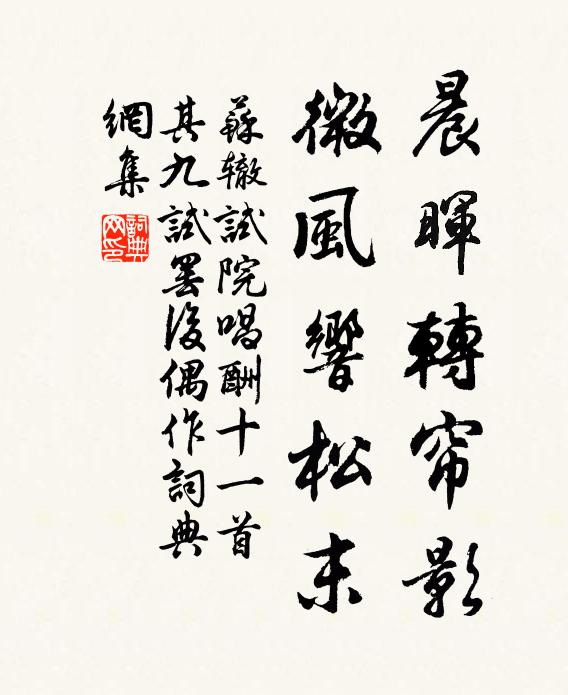 晨暉轉帘影
微風響松末
蘇辙試院唱酬十一首
其九試罢後偶作詞典
網集
詞典
网印